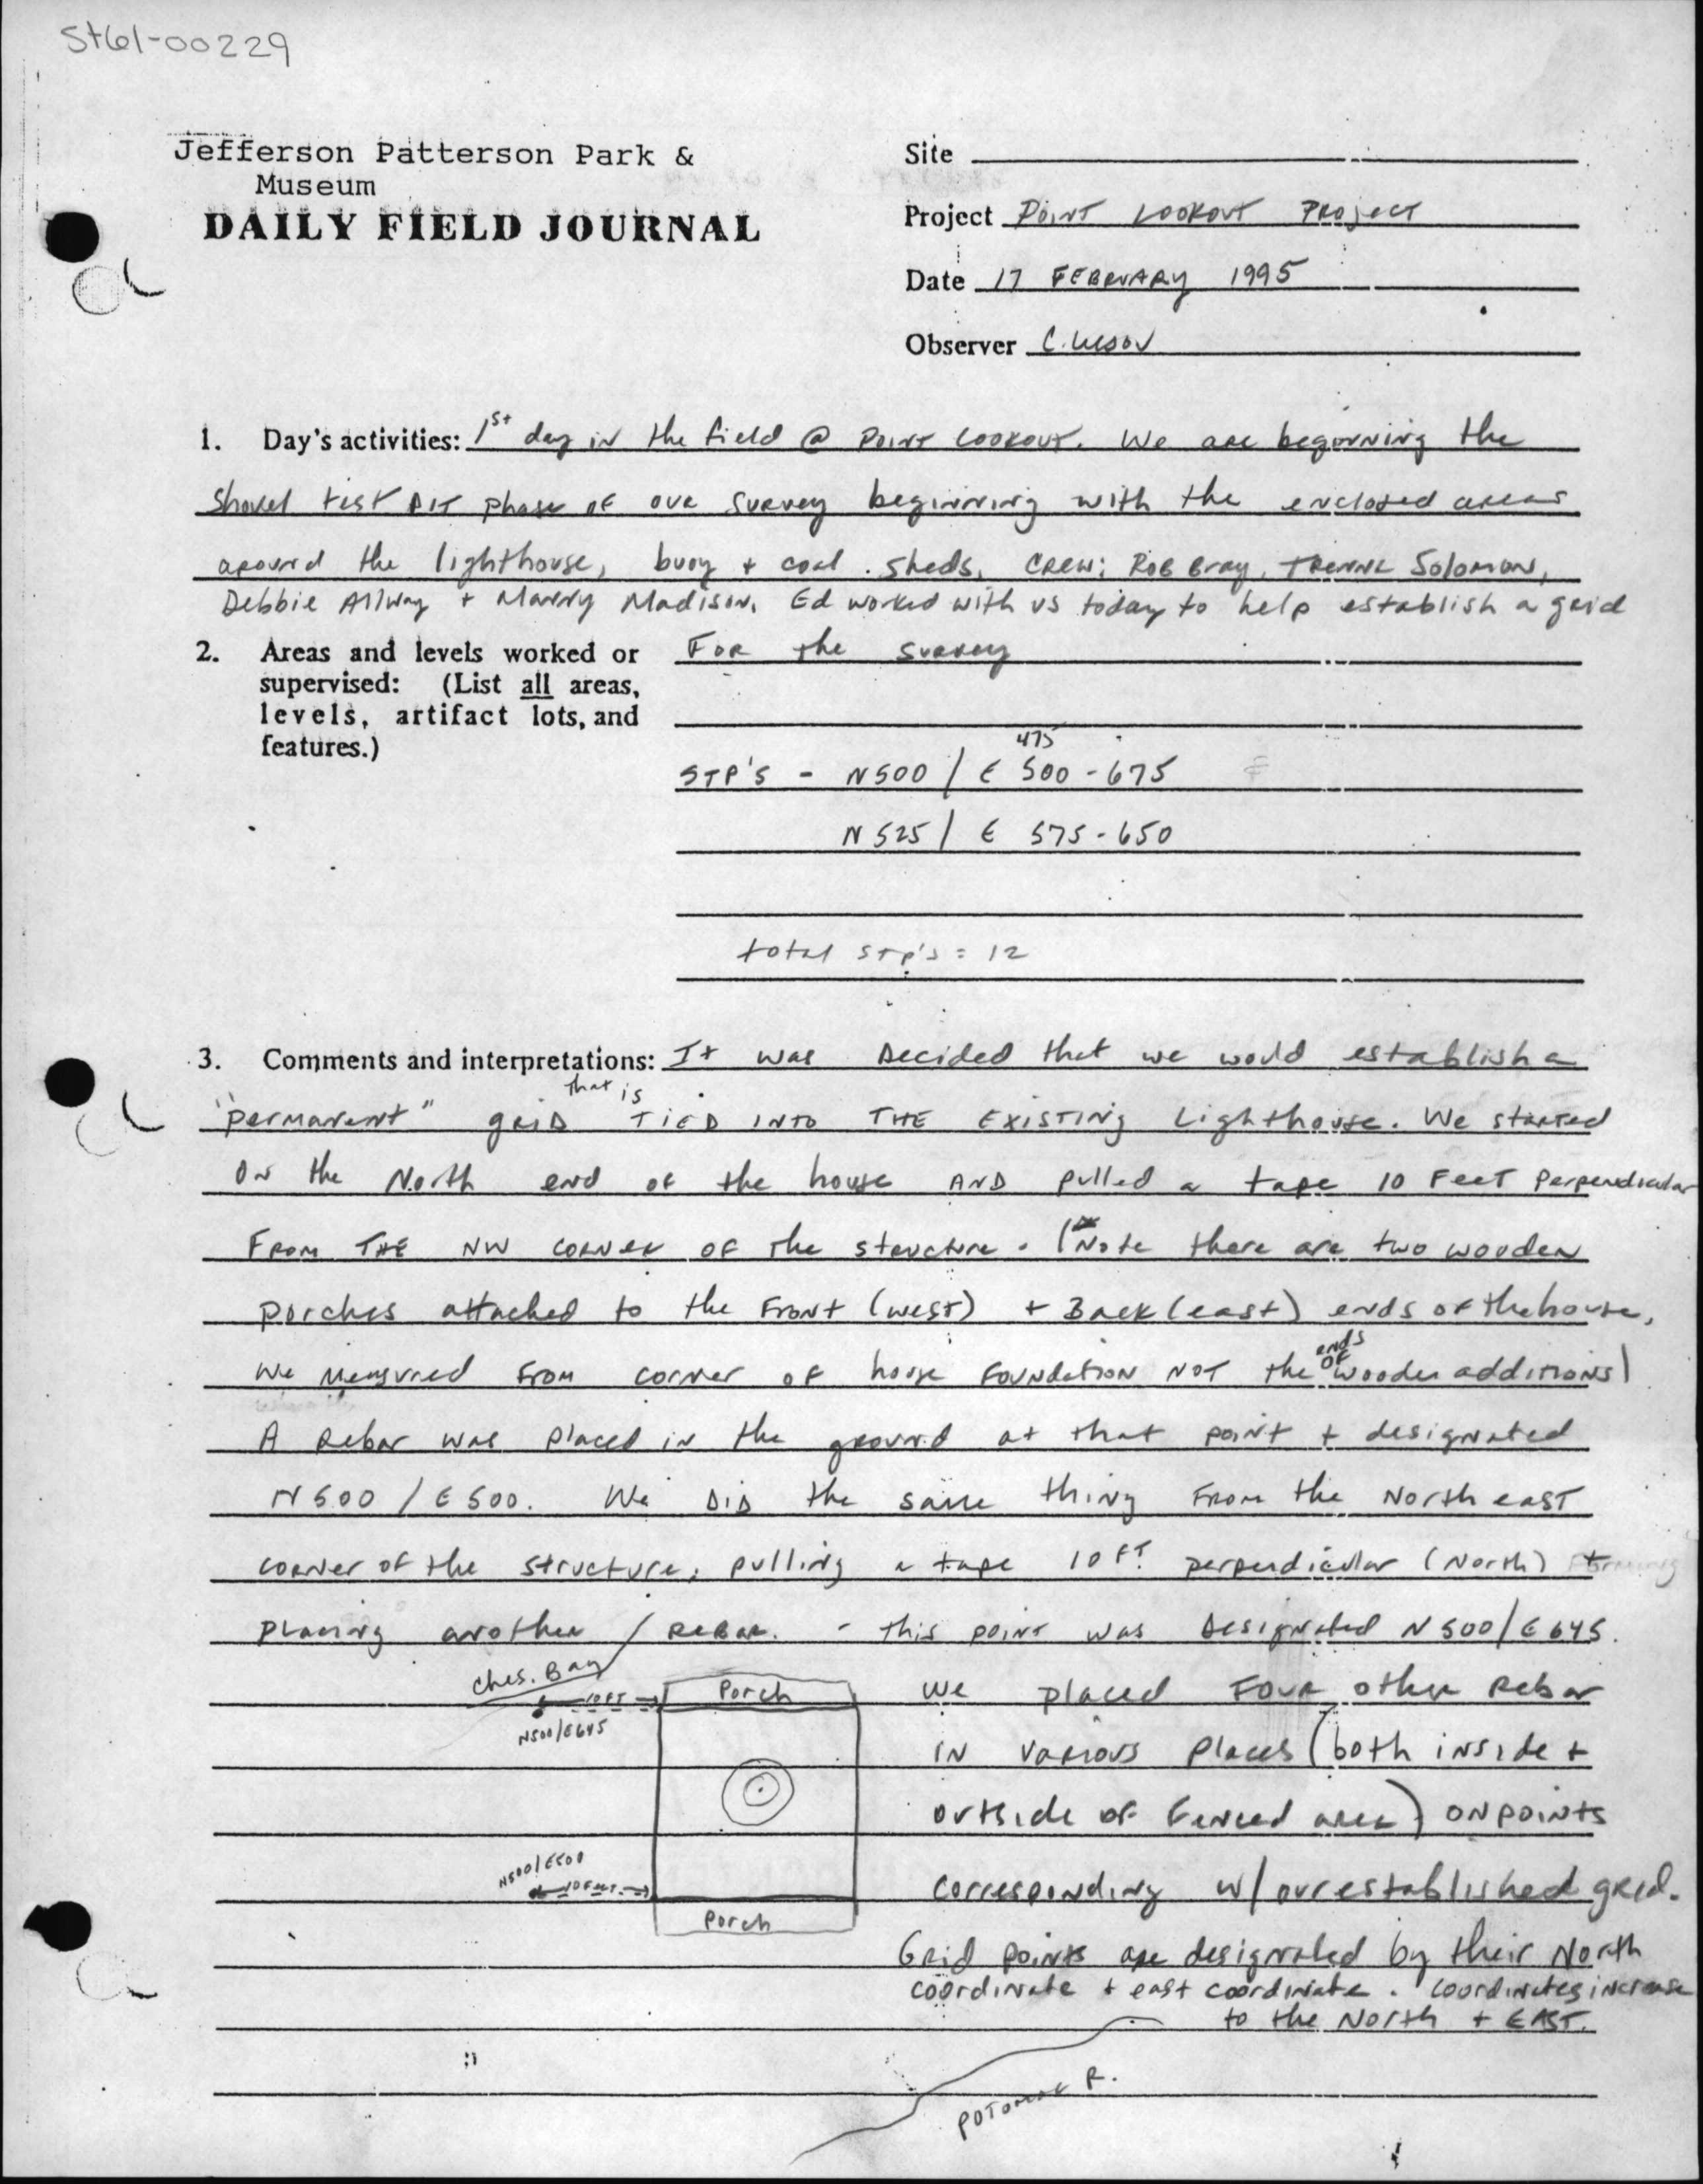 St61-00229
Jefferson Patterson Park &
Museum
DAILY FIELD JOURNAL
Site
Project Point Lookout Project
Date 17 February 1995
Observer C.
1. Day's activities: 1st day in the field @ Point Lookout. We are beginning the
shovel test pit phase of our survey beginning with the enclosed areas
around the lighthouse, buoy + coal sheds. Crew: Rob Bray, Solomon,
Debbie Allway + Madison. Ed worked with us today to help establish a grid
2. Areas and levels worked or
supervised: (List all areas,
levels, artifact lots, and
features.)
For the survey
475
STP'S - N500 / E 500 - 675
N 525 / E 575 - 650
total STP's = 12
3. Comments and interpretations: It was decided that we would establish a
that is
"permanent" grid TIED INTO THE EXISTING Lighthouse. We started
on the North end of the house AND pulled a tape 10 Feet perpendicular
From THE NW corner of the structure. (Note there are two wooden
porches attached to the Front (west) + Back (east) ends of the house,
ends
of
We measured from corner of house Foundation NOT the wooden additions)
A Rebar was placed in the ground at that point + designated
N500 / E500. We DID the same thing From the North east
corner of the structure, pulling a tape 10 FT. perpendicular (North) +
placing another rebar. - this point was designated N500/E645.
Ches. Bay
10 FT
Porch
N500/E645
We placed Four other Rebar
in various places (both inside +
outside of Fenced area) on points
N500/E500
10 Feet
corresponding w/ our established grid.
Porch
Grid points are designated by their North
coordinate + east coordinate. Coordinates increase
to the North + EAST.
Potomac R.